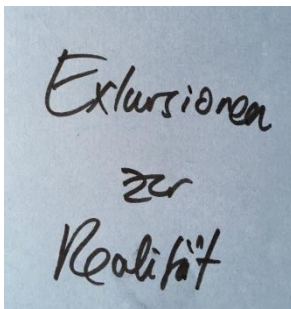 Exkursionen
zur
Realität